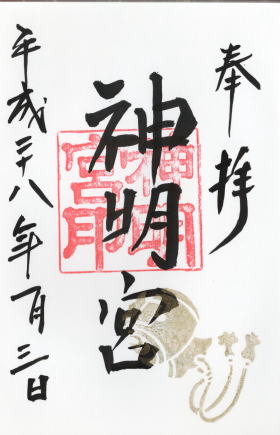 奉拝
神明宮
神明宮印
平成二十八年一月三日